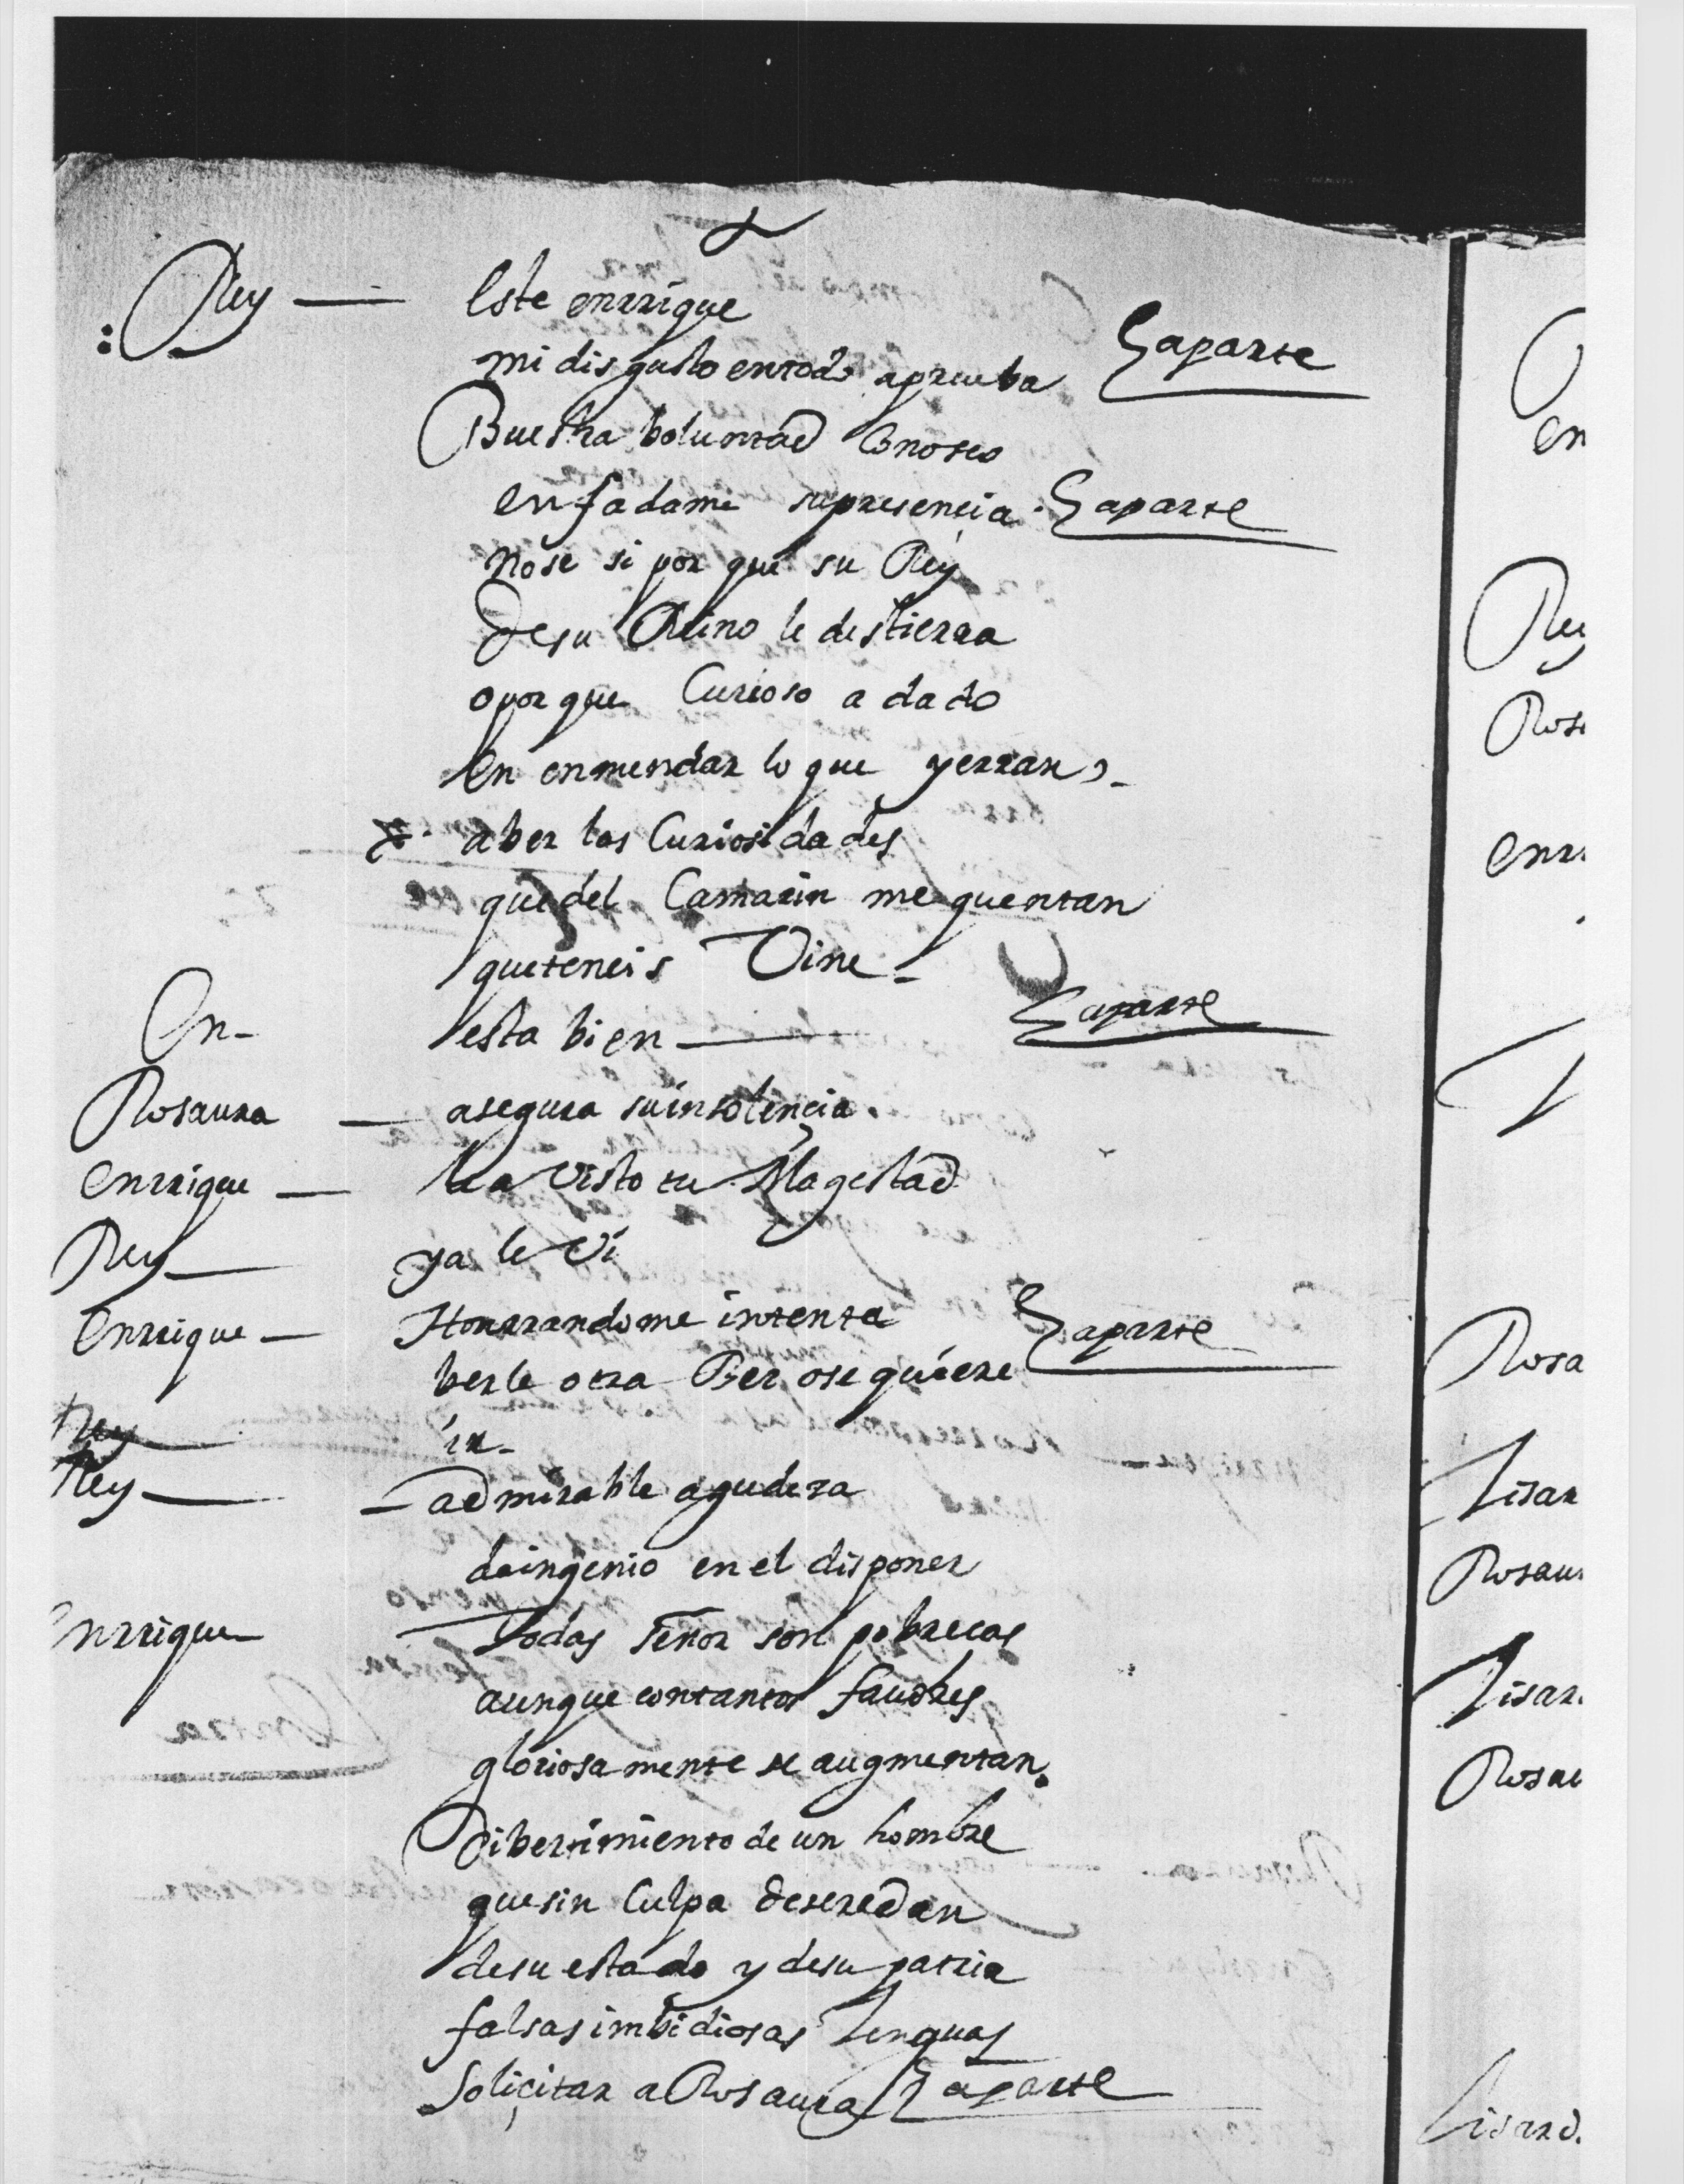 Rey — Este enrrique
mi disgusto entodo aprueba {aparte
Buestra boluntad Conosco
enfadame supresencia. {aparte
nose si por que su Rey
desu Reino le destierra
oporque Curioso a dado
en enmendar lo que yerran
aber las Curiosidades
quedel Camarin me quentan
queteneis Vine
En- esta bien — {aparte
Rosaura — asegura suinsolençia.
enrrique — ha visto tu Magestad
Rey — ya le vi
enrrique — Honrrandome intenta {aparte
berle otra Bez ose quiere
Rey
ir-
Rey — admirable agudeza
deingenio en el disponer
enrrique Todas señor son pobrecas
aunque contantos fauores
gloriosamente se augmentan.
Dibertimiento de un hombre
quesin Culpa deseredan
desu estado y desu patria
falsas imbidiosas lenguas
Soliçitar a Rosaura {aparte
en
Rey
enrr.
Rosa
Lisar
Rosau
Lisar.
Rosau
Lisard.